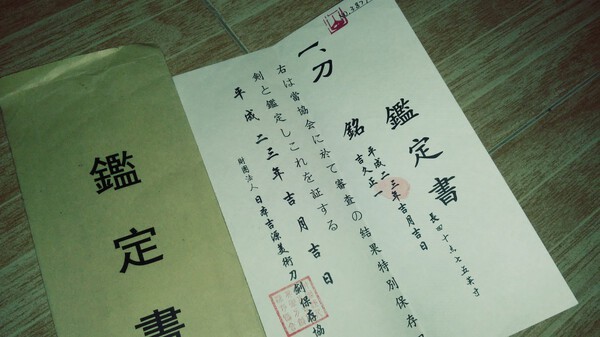 鑑定書
鑑定書
長四十点七五英寸
平成二三年吉月吉日
銘 吉久正一
一、刀
右は當協会に於て審査の結果特別保存
剣と鑑定しこれを証する
平成二三年吉月吉日
財團法人日本吉源美術刀剣保存協